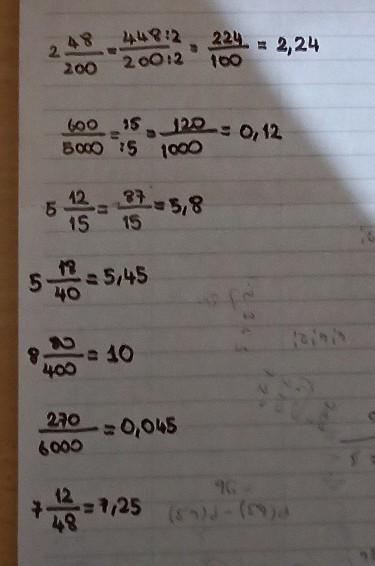 2 48/200 = 448:2/200:2 = 224/100 = 2,24
600/5000 = :5/:5 = 120/1000 = 0,12
5 12/15 = 87/15 = 5,8
5 18/40 = 5,45
= 10
270/6000 = 0,045
7 12/48 = 7,25